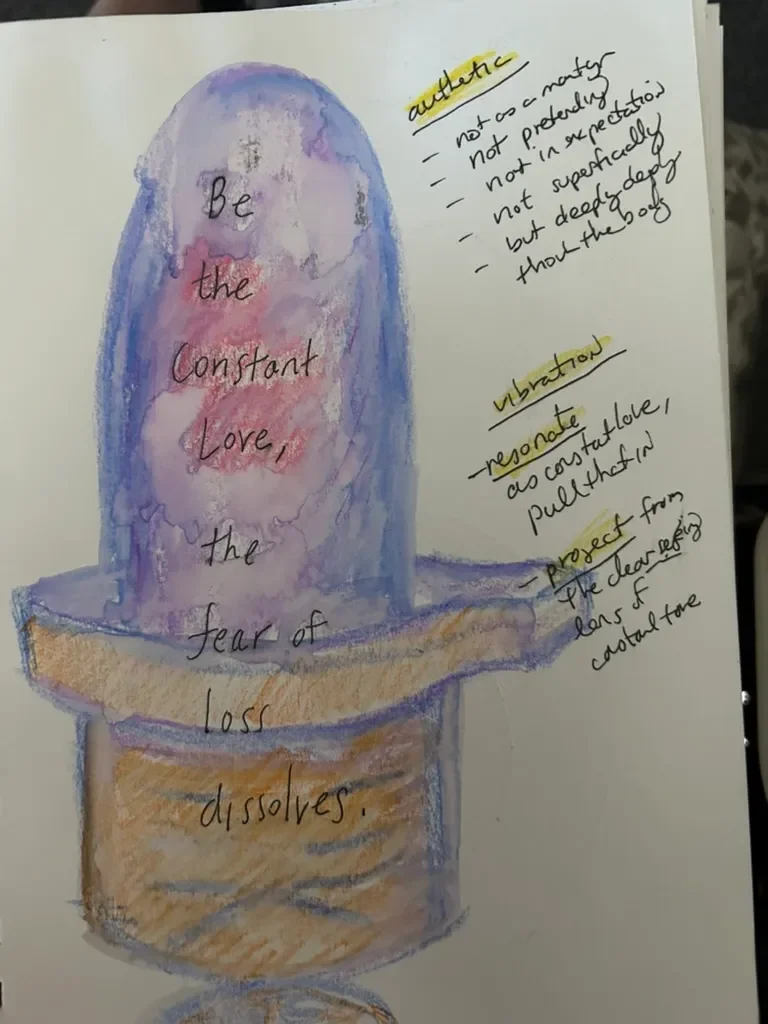 Be
the
Constant
Love,
the
fear of
loss
dissolves.
authetic
- not as a martyr
- not pretending
- not in expectation
- not superficially
- but deeply deeply
vibration
- resonate
as constat love,
pull that in
- project from
the clear
lens of